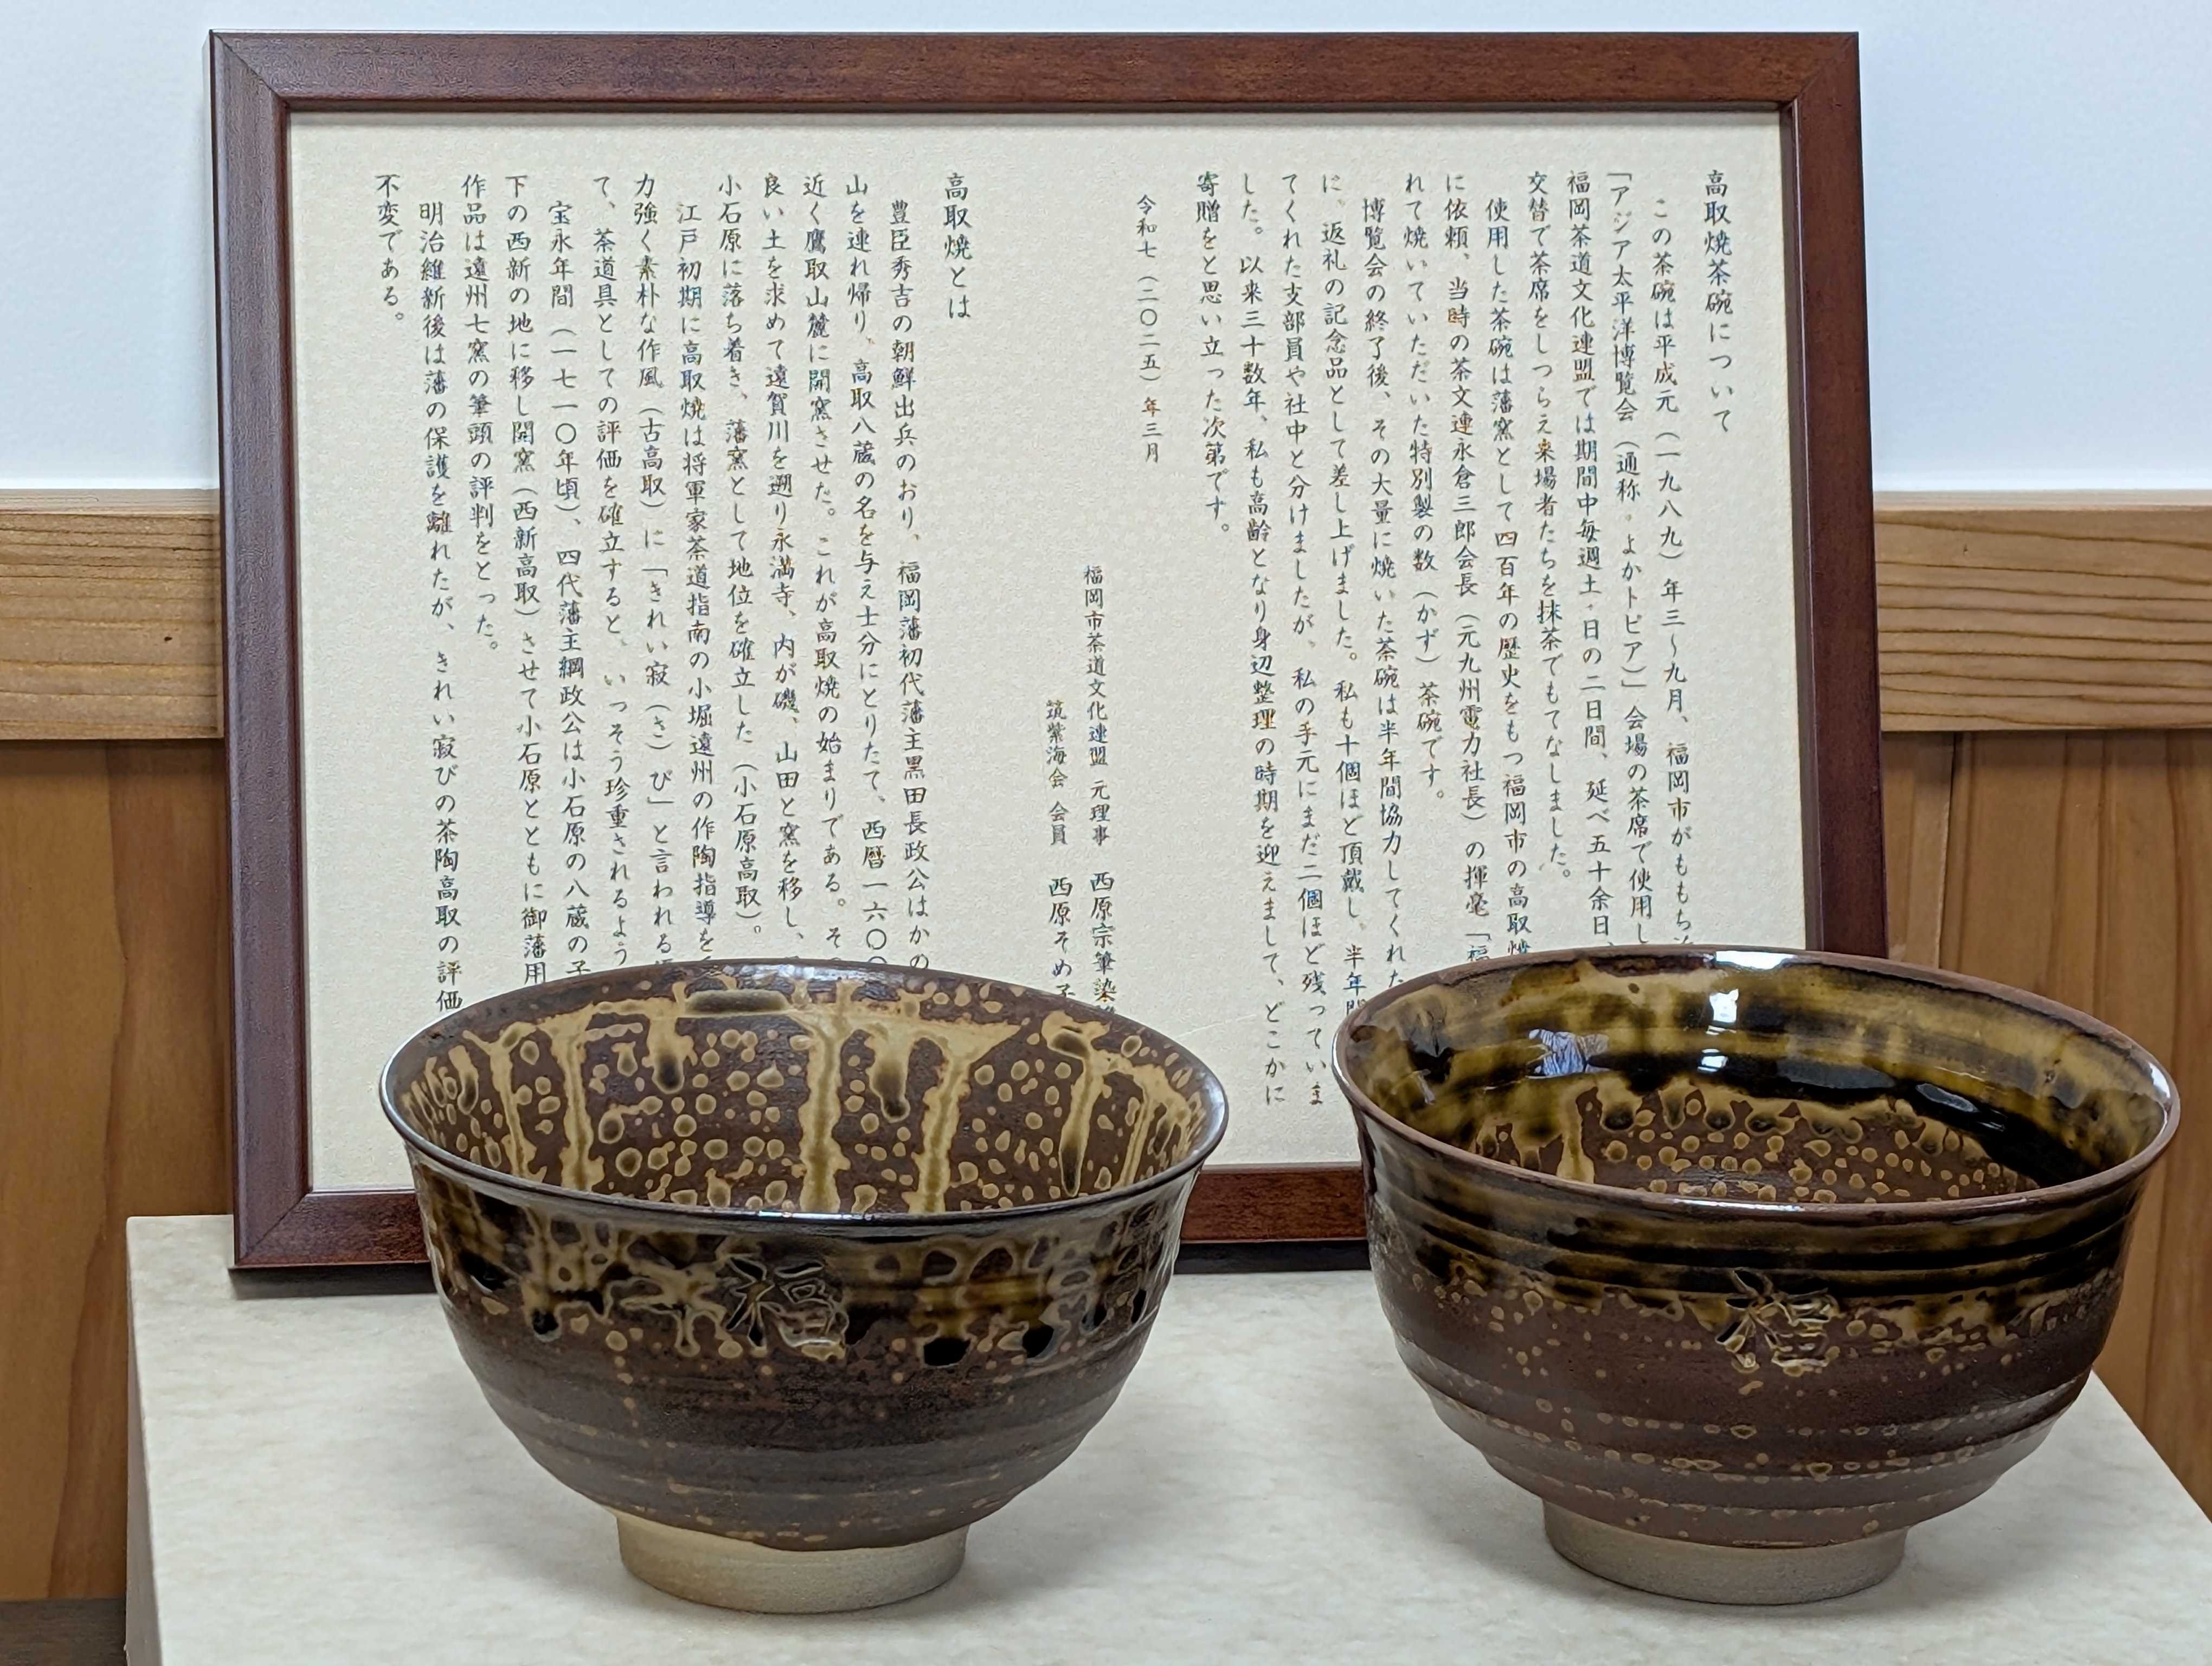 高取焼茶碗について
この茶碗は平成元（一九八九）年三〜九月、福岡市がももち
「アジア太平洋博覧会（通称。よかトピア）」会場の茶席で使用し
福岡茶道文化連盟では期間中毎週土・日の二日間、延べ五十余日、
交替で茶席をしつらえ来場者たちを抹茶でもてなしました。
使用した茶碗は藩窯として四百年の歴史をもつ福岡市の高取焼
に依頼、当時の茶文連永倉三郎会長（元九州電力社長）の揮毫「福
れて焼いていただいた特別製の数（かず）茶碗です。
博覧会の終了後、その大量に焼いた茶碗は半年間協力してくれた
に、返礼の記念品として差し上げました。私も十個ほど頂戴し、半年間
てくれた支部員や社中と分けましたが、私の手元にまだ二個ほど残っていま
した。以来三十数年、私も高齢となり身辺整理の時期を迎えまして、どこかに
寄贈をと思い立った次第です。
令和七（二〇二五）年三月
福岡市茶道文化連盟 元理事 西原宗筆染
筑紫海会 会員 西原そめ子
高取焼とは
豊臣秀吉の朝鮮出兵のおり、福岡藩初代藩主黒田長政公はかの
山を連れ帰り、高取八蔵の名を与え士分にとりたて、西暦一六〇〇
近く鷹取山麓に開窯させた。これが高取焼の始まりである。そ
良い土を求めて遠賀川を遡り永満寺、内が磯、山田と窯を移し、
小石原に落ち着き、藩窯として地位を確立した（小石原高取）。
江戸初期に高取焼は将軍家茶道指南の小堀遠州の作陶指導を
力強く素朴な作風（古高取）に「きれい寂（さ）び」と言われる
て、茶道具としての評価を確立すると、いっそう珍重されるよう
宝永年間（一七一〇年頃）、四代藩主綱政公は小石原の八蔵の子
下の西新の地に移し開窯（西新高取）させて小石原とともに御藩用
作品は遠州七窯の筆頭の評判をとった。
明治維新後は藩の保護を離れたが、きれい寂びの茶陶高取の評価
不変である。
福
福